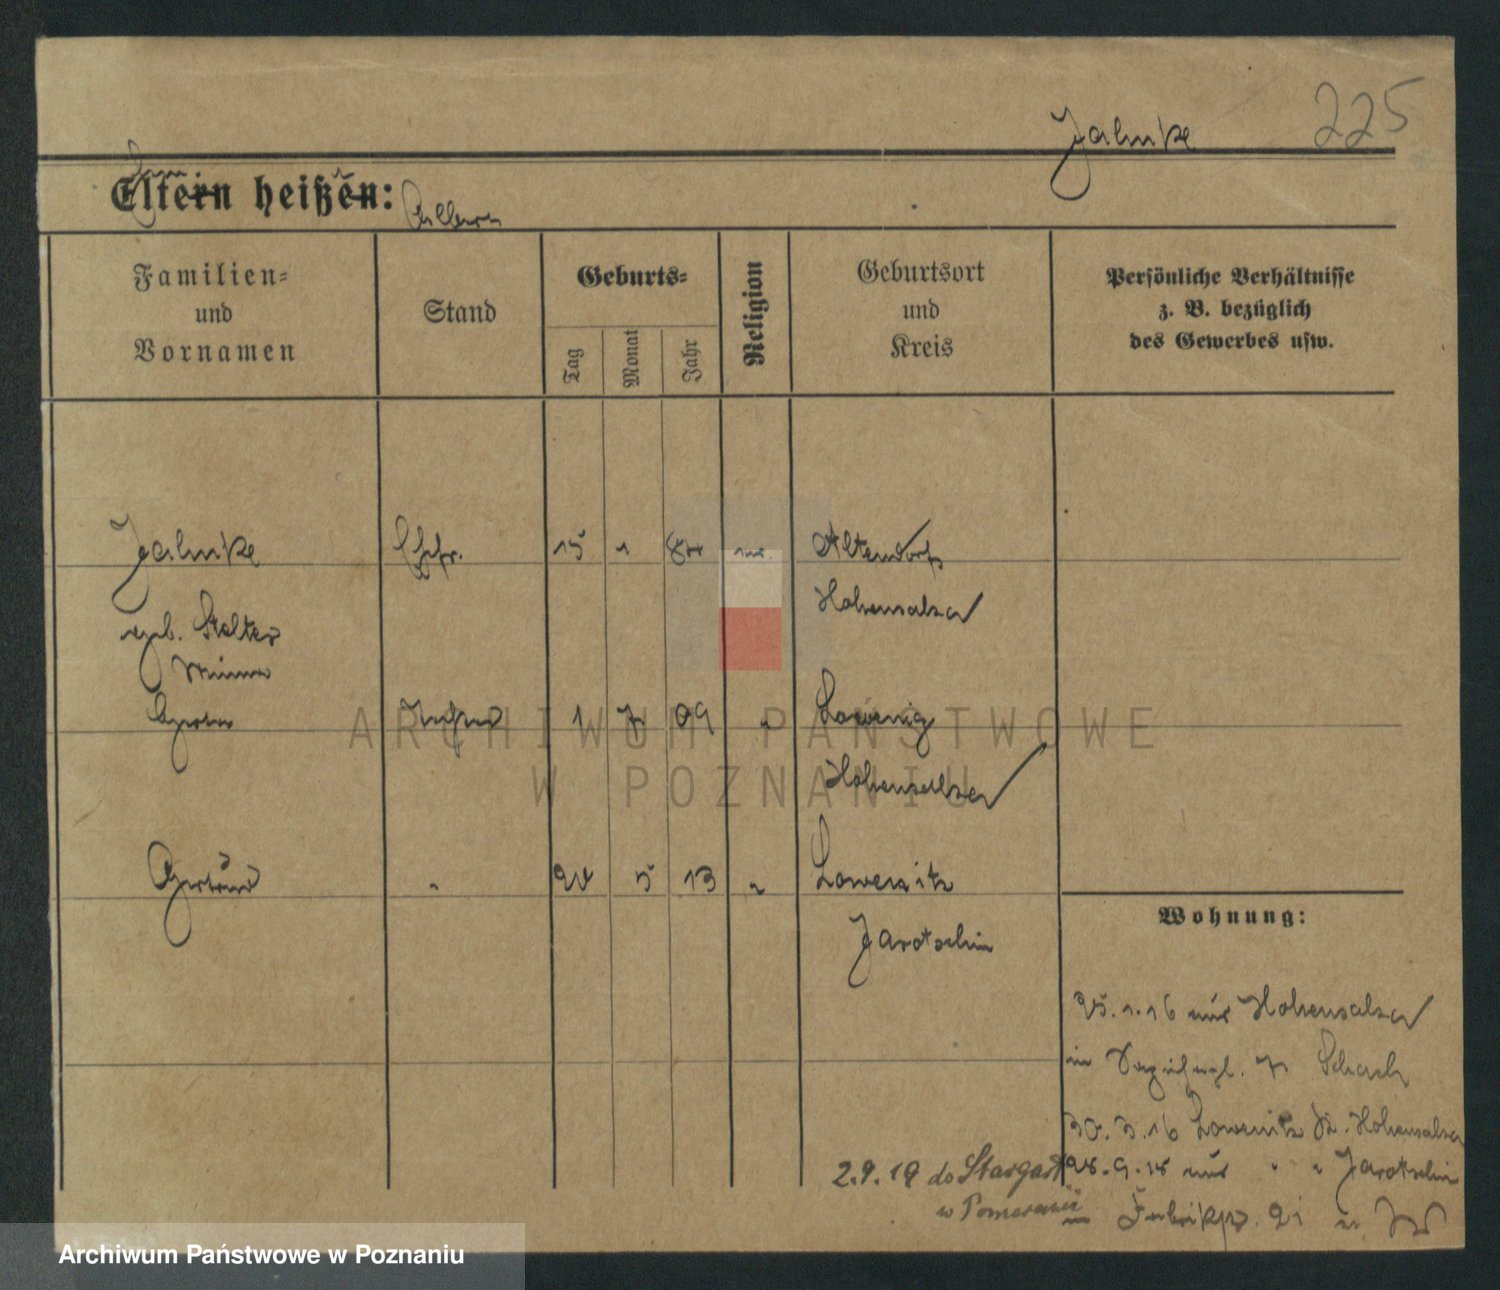 225
Jahnke
Eltern heißen:
Familien=
und
Vornamen
Stand
Geburts=
Tag
Monat
Jahr
Religion
Geburtsort
und
Kreis
Persönliche Verhältnisse
z. B. bezüglich
des Gewerbes usw.
Jahnke Ehefr. 15 1 84 Altendorf
Hohensalza
geb. Stelter
Minna
1 7 09 "
Hohensalza
Gertrud " 24 5 13 " Lowenitz
Jarotschin
Wohnung:
25.1.16 aus Hohensalza
in Schach
30.3.16 Lowenitz Kr. Hohensalza
28.9.18 aus " " Jarotschin
2.9.19 do Stargart
w Pomeranii
ARCHIWUM PAŃSTWOWE
W POZNANIU
Archiwum Państwowe w Poznaniu